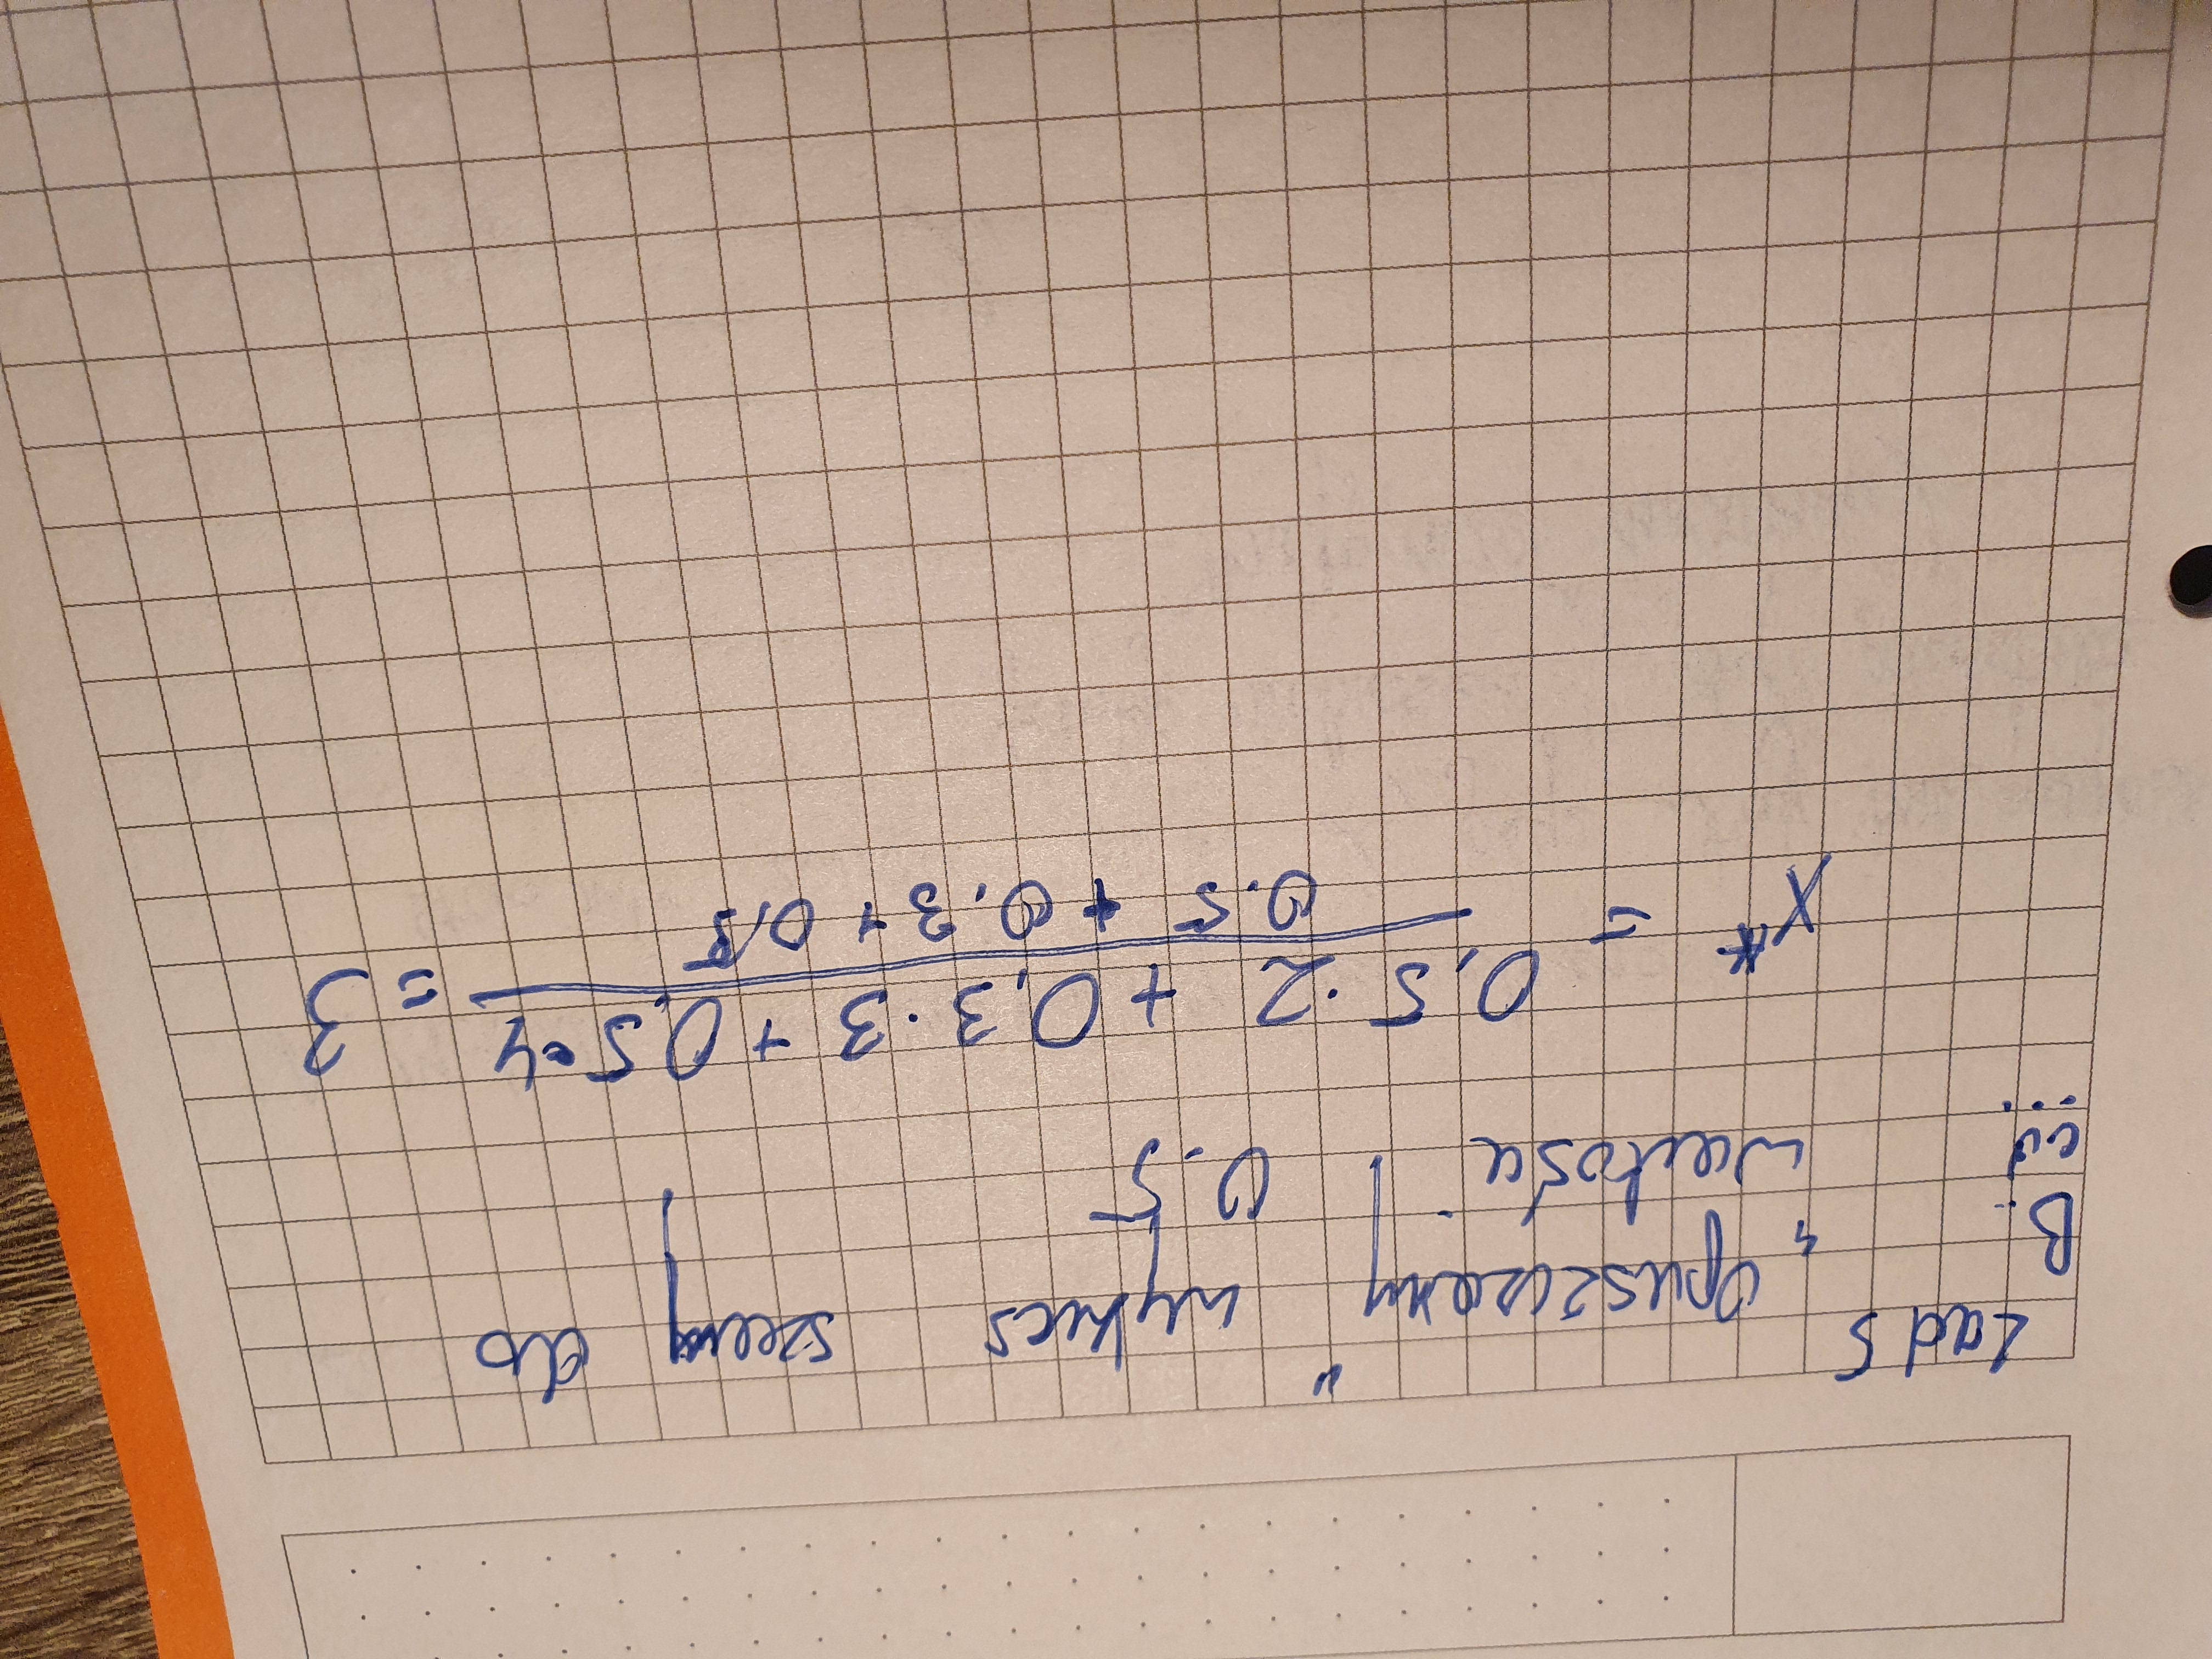 Zad 5
B. „opuszczamy" wykres szary do
cd wartości 0.5
...
x* = \frac{0,5 · 2 + 0,3 · 3 + 0,5 · 4}{0.5 + 0.3 + 0,5} = 3